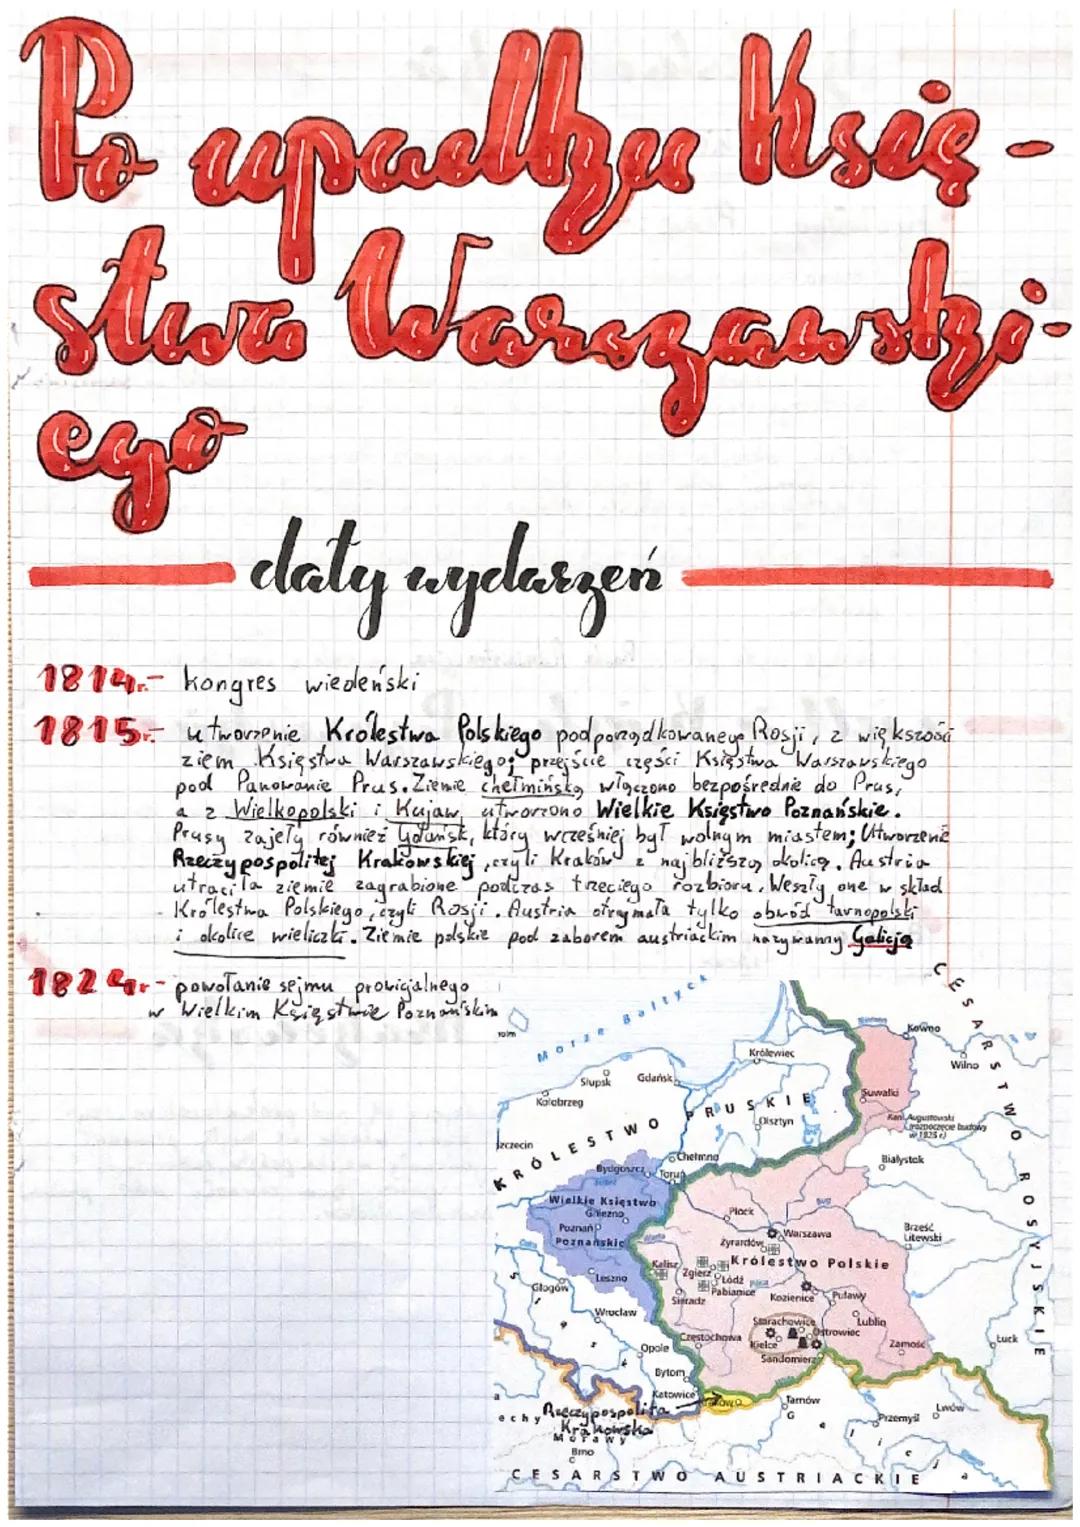 Po upadku Księ-
stwa Warszawski-
ego
daty wydarzeń
1814r.- kongres wiedeński
1815r.- utworzenie Królestwa Polskiego podporządkowanego Rosji, z większości
ziem Księstwa Warszawskiego; przejście części Księstwa Warszawskiego
pod Panowanie Prus. Ziemie chełmińską włączono bezpośrednie do Prus,
a z Wielkopolski i Kujaw utworzono Wielkie Księstwo Poznańskie.
Prusy zajęły również Gdańsk, który wcześniej był wolnym miastem; Utworzenie
Rzeczypospolitej Krakowskiej, czyli Kraków z najbliższą okolicą. Austria
utraciła ziemie zagrabione podczas trzeciego rozbioru. Weszły one w skład
Królestwa Polskiego, czyli Rosji. Austria otrzymała tylko obwód tarnopolski
i okolice wieliczki. Ziemie polskie pod zaborem austriackim nazywamy Galicją
1824r.- powołanie sejmu prowicjalnego
w Wielkim Księstwie Poznańskim
Morze Bałtyck
CESARSTWO ROSYJSKIE
Kowno
Wilno
Królewiec
Słupsk
Gdańsk
Kołobrzeg
Suwałki
KRÓLESTWO PRUSKIE
Olsztyn
Kan. Augustowski
(rozpoczęcie budowy
w 1825 r.)
zczecin
Chełmno
Białystok
Bydgoszcz
Toruń
Wielkie Księstwo
Gniezno
Poznań
Poznańskie
Płock
Bug
Warszawa
Brześć
Litewski
Żyrardów
Warta
Królestwo Polskie
Kalisz
Zgierz
Łódź
Pabianice
Leszno
Głogów
Sieradz
Kozienice
Puławy
Wrocław
Starachowice
Lublin
Częstochowa
Kielce
Ostrowiec
Zamość
Łuck
Opole
Sandomierz
Bytom
Katowice
Kraków
Rzeczypospolita
Krakowska
Tarnów
Przemyśl
Lwów
Galicja
echy
Morawy
Brno
CESARSTWO AUSTRIACKIE